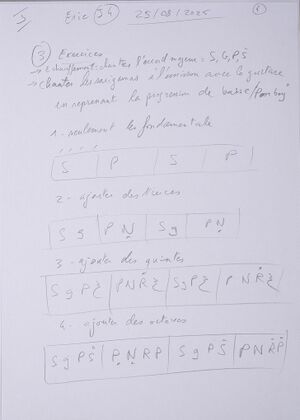 Eric 34 25/08/2025
③ Exercices
→ échauffement: chanter l'accord majeur = S, G, P, Ṡ
→ chanter les sargams à l'unisson avec la guitare
en reprenant la progression de basse /
1 - seulement les fondamentales
S | P | S | P
2 - ajouter des tierces
S g | P Ṇ | S g | P Ṇ
3 - ajouter des quintes
S g P | P N Ṙ | S g P | P N Ṙ
4. ajouter des octaves
S g P Ṡ | P Ṇ R P | S g P Ṡ | P N Ṙ Ṗ